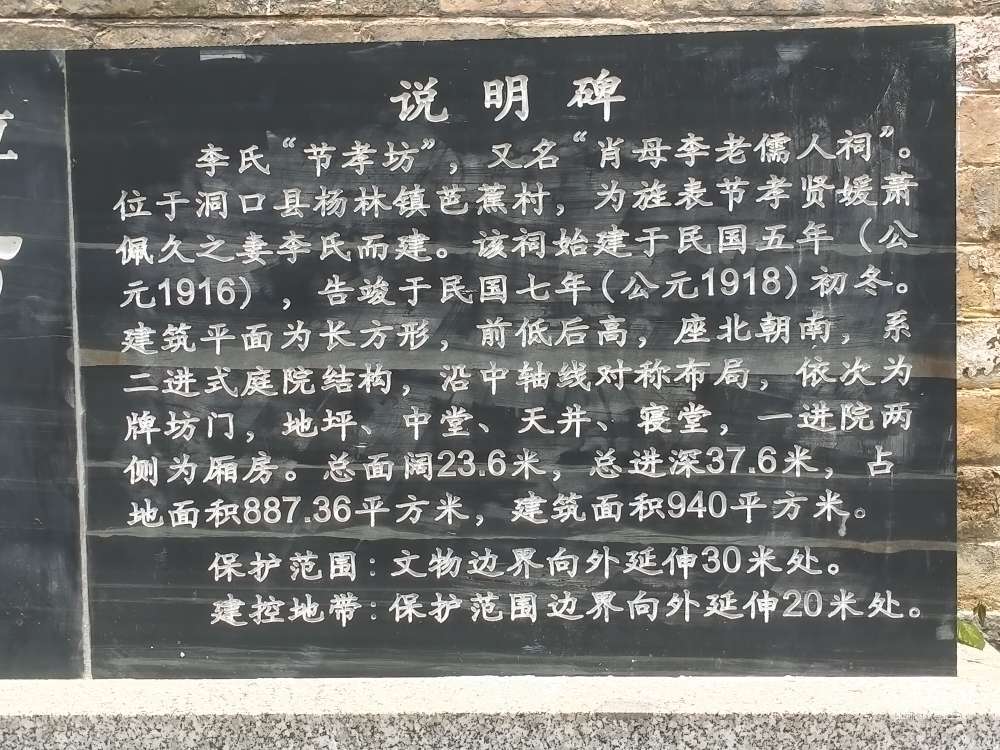 说明碑
李氏“节孝坊”，又名“肖母李老儒人祠”。
位于洞口县杨林镇芭蕉村，为旌表节孝贤媛萧
佩久之妻李氏而建。该祠始建于民国五年（公
元1916），告竣于民国七年（公元1918）初冬。
建筑平面为长方形，前低后高，座北朝南，系
二进式庭院结构，沿中轴线对称布局，依次为
牌坊门，地坪、中堂、天井、寝堂，一进院两
侧为厢房。总面阔23.6米，总进深37.6米，占
地面积887.36平方米，建筑面积940平方米。
保护范围：文物边界向外延伸30米处。
建控地带：保护范围边界向外延伸20米处。